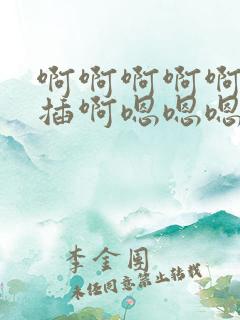 啊啊啊啊啊
插啊嗯嗯嗯
李金围
未经同意禁止转载